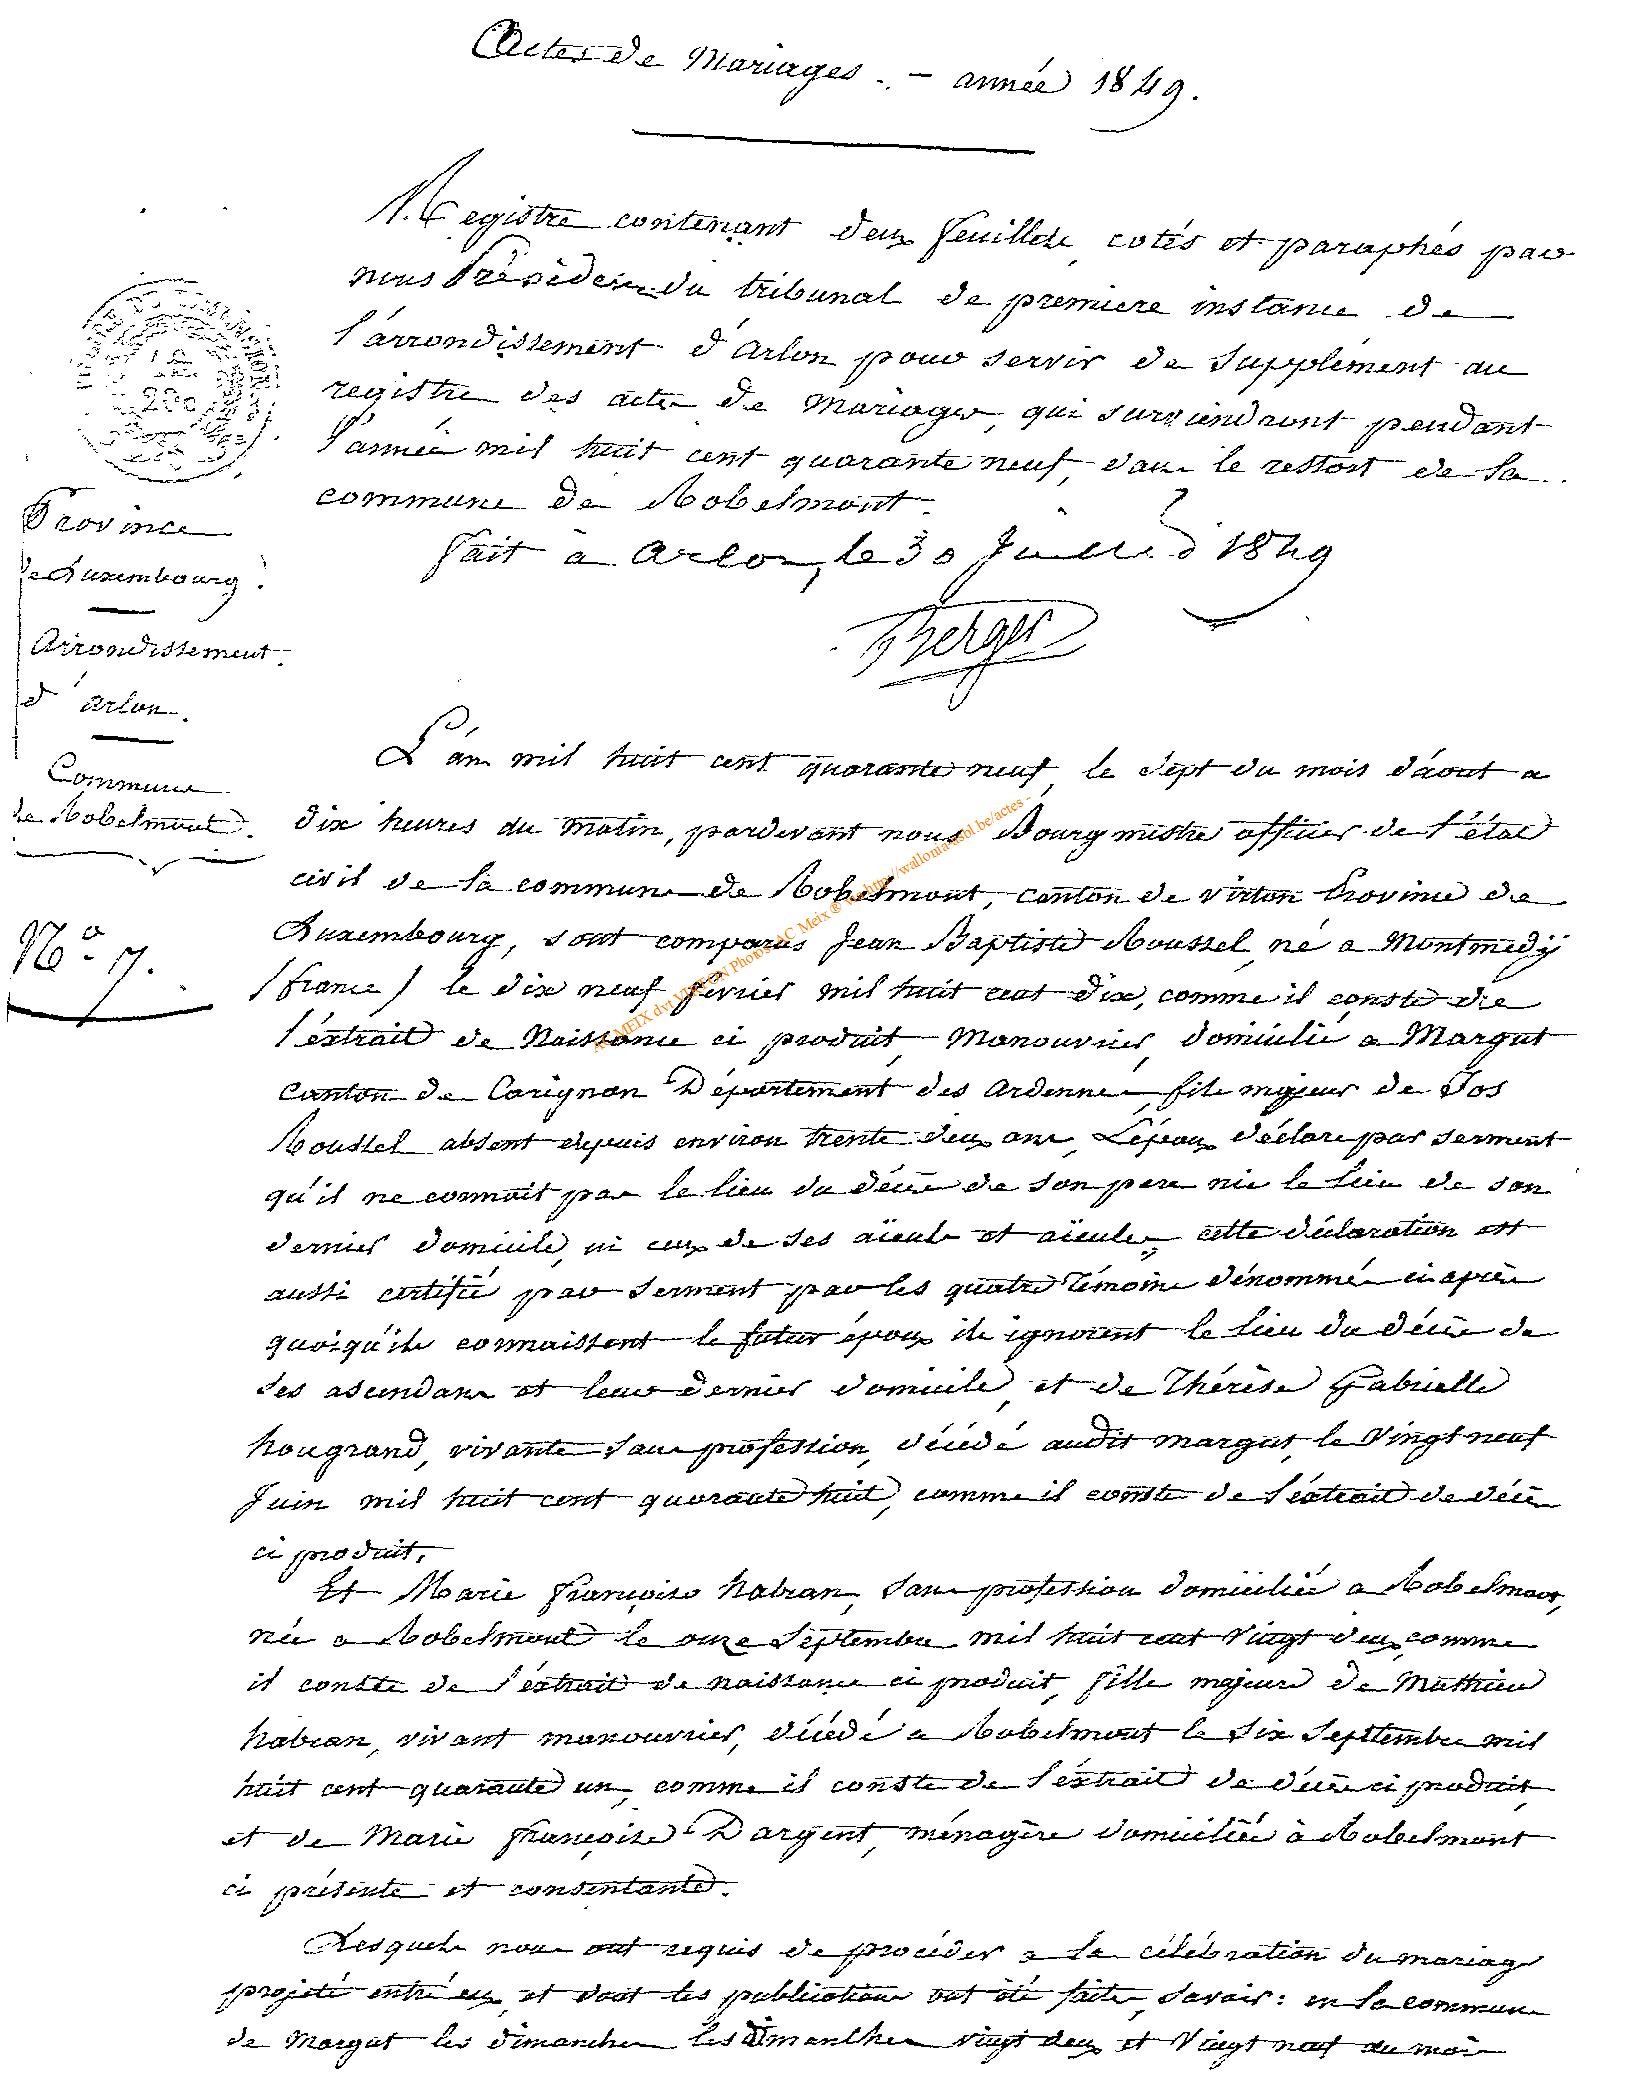 Actes de Mariages. - année 1849.
Registre contenant deux feuillets, cotés et paraphés par
nous Président du tribunal de premiere instance de
l'arrondissement d'Arlon pour servir de supplément au
registre des actes de Mariages, qui surviendront pendant
l'année mil huit cent quarante neuf, dans le ressort de la
commune de Robelmont.
fait à Arlon, le 30 Juillet 1849
Berger
Province
de Luxembourg.
Arrondissement
d'Arlon.
Commune
de Robelmont.
N° 7.
L'an mil huit cent quarante neuf, le sept du mois d'aout a
dix heures du matin, pardevant nous Bourgmestre officier de l'état
civil de la commune de Robelmont, canton de virton Province de
Luxembourg, sont comparus Jean Baptiste Roussel, né a Montmedÿ
(france) le dix neuf fevrier mil huit cent dix, comme il conste de
l'extrait de Naissance ci produit, Manouvrier, domicilié a Margut
canton de Carignan Département des ardennes, fils majeur de Jos
Roussel absent depuis environ trente deux ans, L'époux déclare par serment
qu'il ne connait pas le lieu du décès de son pere nie le lieu de son
dernier domicile, ni ceux de ses aïeuls et aïeules, cette déclaration est
aussi certifié par serment par les quatre témoins dénommés ci après
quoiqu'ils connaissent le futur époux ils ignorent le lieu du décès de
ses ascendans et leur dernier domicile, et de Thérèse Gabrielle
hougrand, vivante sans profession, décédé audit margut, le vingt neuf
Juin mil huit cent quarante huit, comme il conste de l'extrait de décès
ci produit.
Et Marie françoise habran, sans profession domiciliée a Robelmont,
née a Robelmont le onze Septembre mil huit cent vingt deux, comme
il conste de l'extrait de naissance ci produit, fille majeure de Mathieu
habran, vivant manouvrier, décédé a Robelmont le six Septtembre mil
huit cent quarante un, comme il conste de l'extrait de décès ci produit,
et de Marie françoise Dargent, ménagère domiciliée à Robelmont
ci présente et consentante.
Lesquels nous ont requis de procéder a la célébration du mariage
projeté entré eux, et dont les publications ont été faites, Savoir: en la commune
de Margut les dimanches les dimanches vingt deux et vingt neuf du mois
AC MEIX dvt VIRTON Photos AC Meix © http://wallonia.asbl.be/actes -